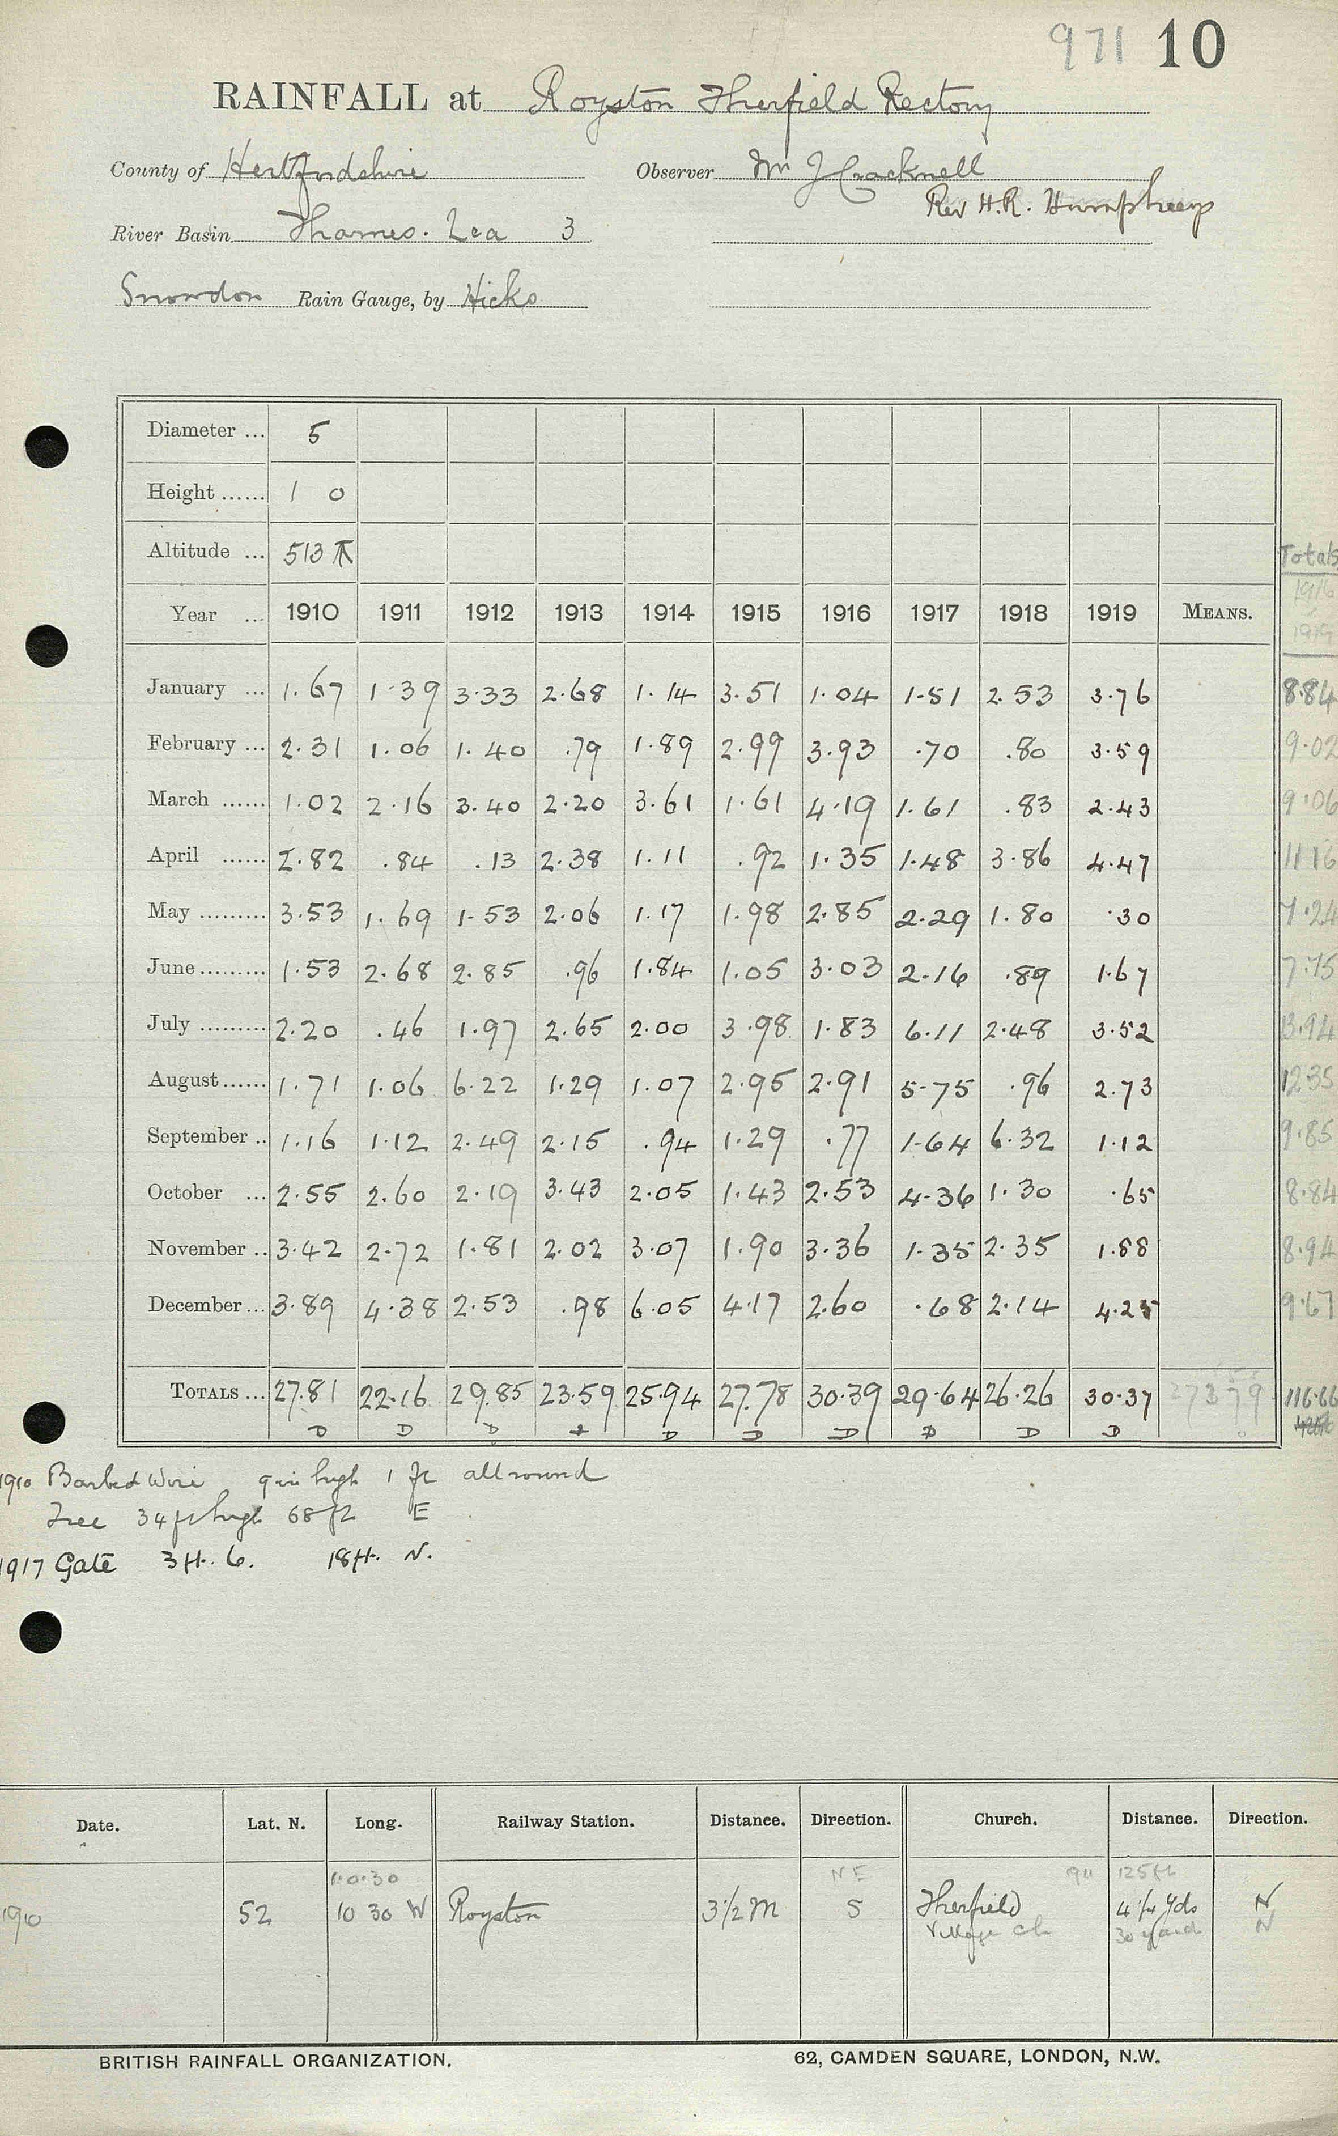 971 10
RAINFALL at Royston Therfield Rectory
County of Hertfordshire Observer Mr J Cracknell
Rev H.R. Humphreys
River Basin Thames. Lea 3
Snowdon Rain Gauge, by Hicks
Diameter ... 5
Height ...... 1 0
Altitude ... 513 Totals
Year ... 1910 1911 1912 1913 1914 1915 1916 1917 1918 1919 MEANS. 1916 1919
January ... 1.67 1.39 3.33 2.68 1.14 3.51 1.04 1.51 2.53 3.76 8.84
February ... 2.31 1.06 1.40 .79 1.89 2.99 3.93 .70 .80 3.59 9.02
March ...... 1.02 2.16 3.40 2.20 3.61 1.61 4.19 1.61 .83 2.43 9.06
April ...... 2.82 .84 .13 2.38 1.11 .92 1.35 1.48 3.86 4.47 11.16
May ......... 3.53 1.69 1.53 2.06 1.17 1.98 2.85 2.29 1.80 .30 7.24
June ......... 1.53 2.68 2.85 .96 1.84 1.05 3.03 2.16 .89 1.67 7.75
July ......... 2.20 .46 1.97 2.65 2.00 3.98 1.83 6.11 2.48 3.52 13.94
August ...... 1.71 1.06 6.22 1.29 1.07 2.95 2.91 5.75 .96 2.73 12.35
September .. 1.16 1.12 2.49 2.15 .94 1.29 .77 1.64 6.32 1.12 9.85
October ... 2.55 2.60 2.19 3.43 2.05 1.43 2.53 4.36 1.30 .65 8.84
November .. 3.42 2.72 1.81 2.02 3.07 1.90 3.36 1.35 2.35 1.88 8.94
December ... 3.89 4.38 2.53 .98 6.05 4.17 2.60 .68 2.14 4.25 9.67
TOTALS ... 27.81 22.16 29.85 23.59 25.94 27.78 30.39 29.64 26.26 30.37 116.66
D D D D D D D D D
1910 Barbed Wire 9 in high 1 ft all round
Tree 34 ft high 68 ft E
1917 Gate 3 ft. 6. 18 ft. N.
Date. Lat. N. Long. Railway Station. Distance. Direction. Church. Distance. Direction.
1.0.30 NE 1911 125 ft
1910 52 10 30 W Royston 3 1/2 M S Therfield 4 1/4 yds N
Village Ch 30 yards N
BRITISH RAINFALL ORGANIZATION. 62, CAMDEN SQUARE, LONDON, N.W.